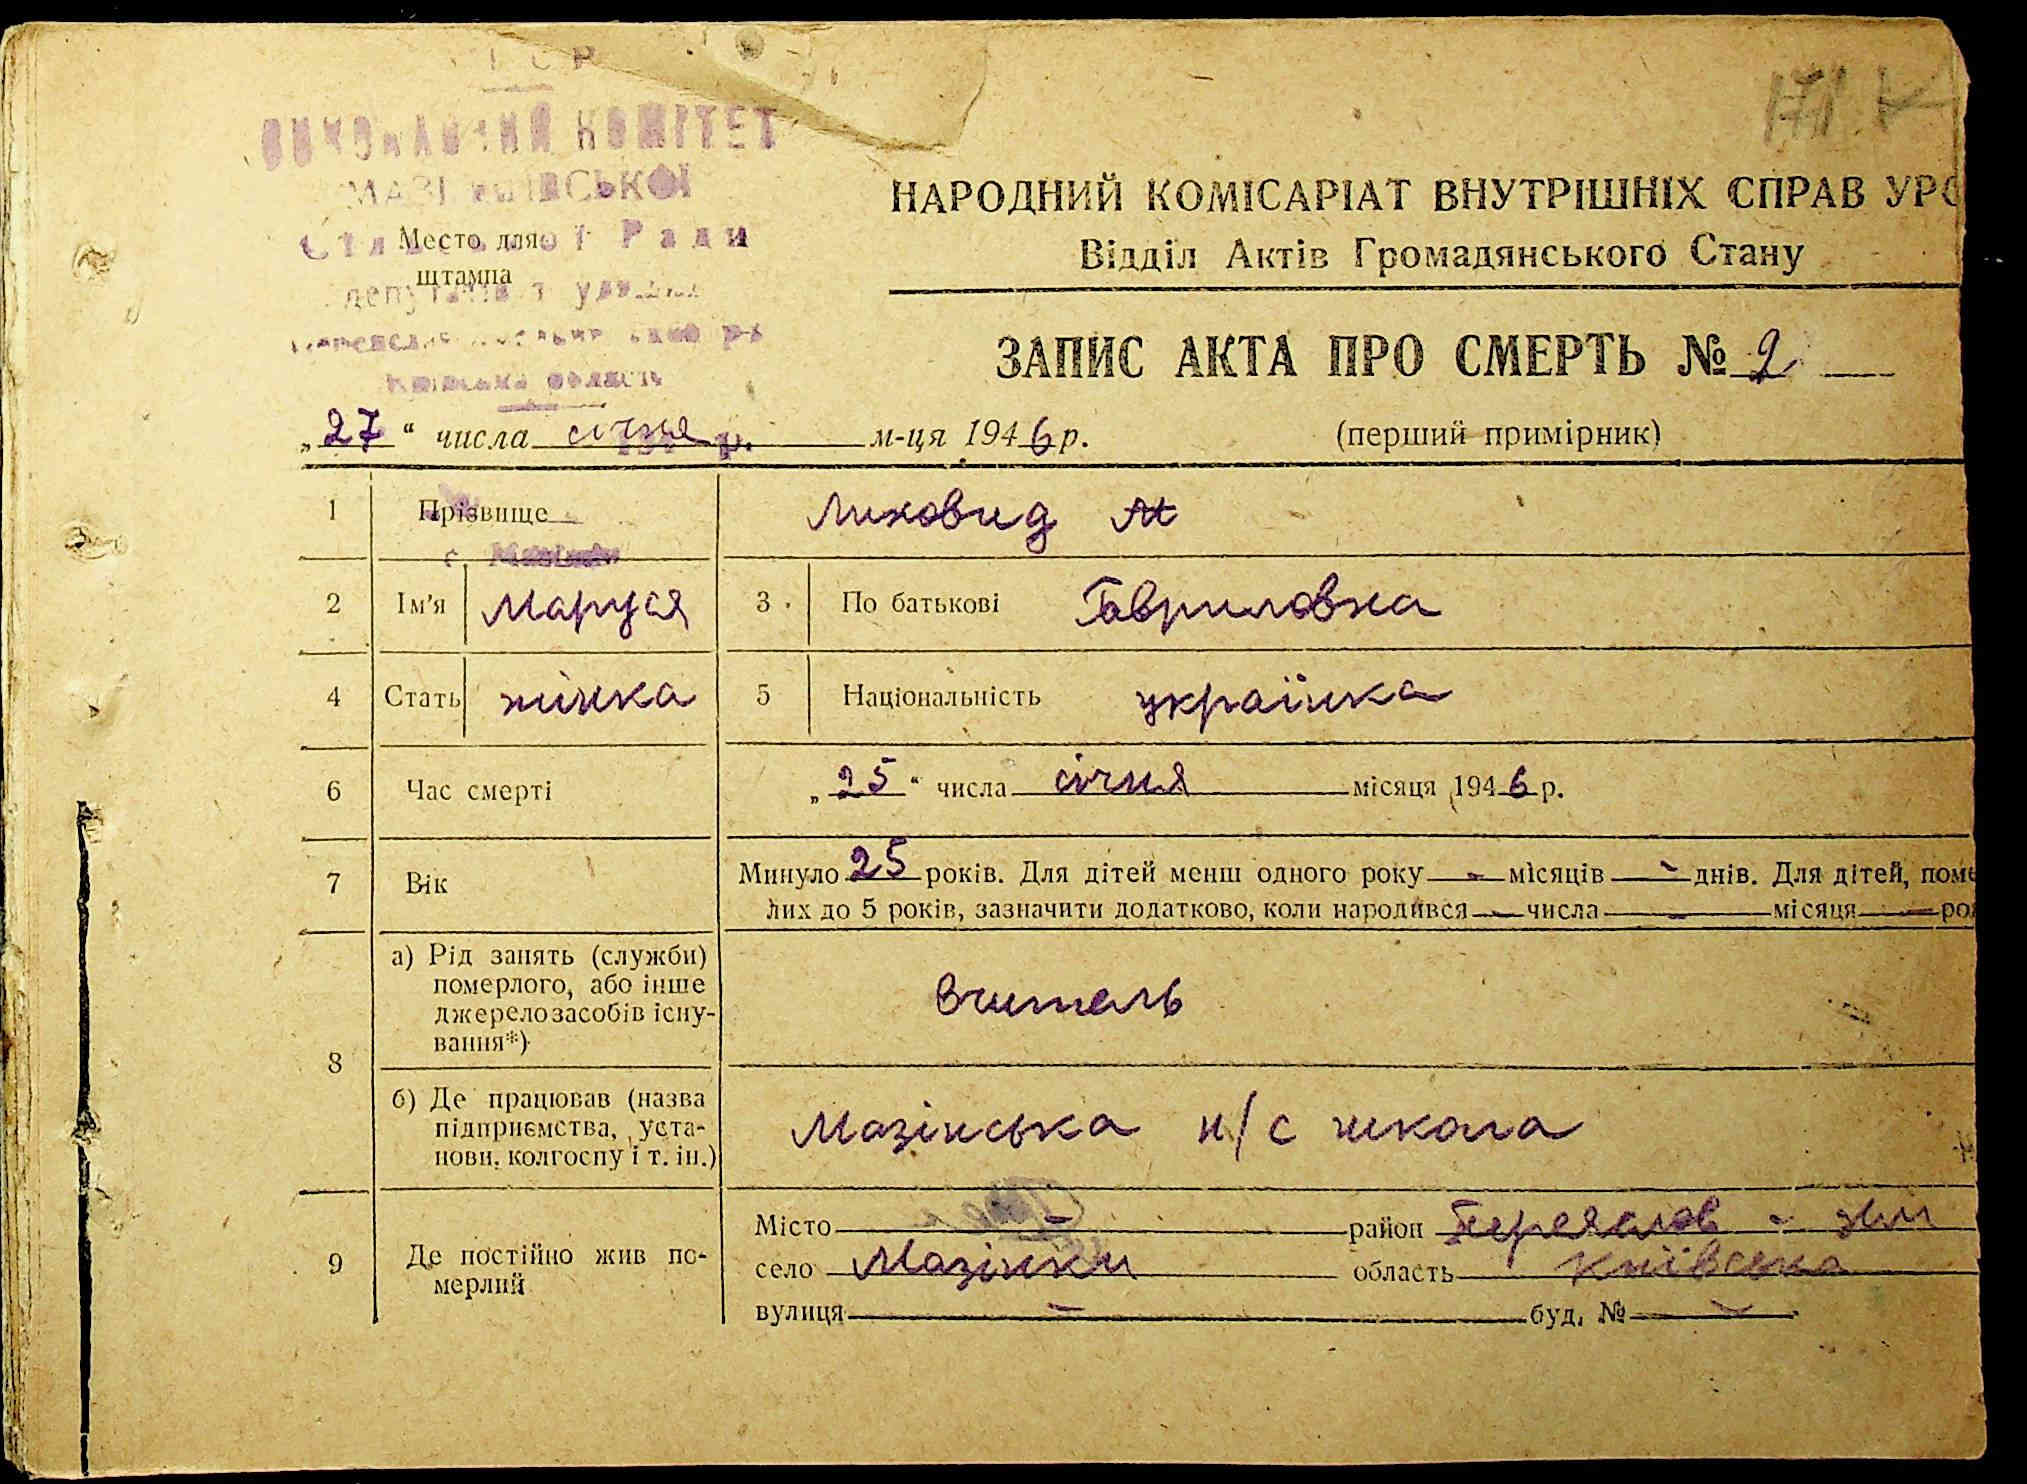 ВИКОНАВЧИЙ КОМІТЕТ
Ради
Место для
штампа
область
НАРОДНИЙ КОМІСАРІАТ ВНУТРІШНІХ СПРАВ УРС
Відділ Актів Громадянського Стану
ЗАПИС АКТА ПРО СМЕРТЬ № 2
„27“ числа січня м-ця 1946 р.
(перший примірник)
1 Прізвище Лиховид
2 Ім'я Маруся 3 По батькові Гавриловна
4 Стать жінка 5 Національність українка
6 Час смерті „25“ числа січня місяця 1946 р.
7 Вік Минуло 25 років. Для дітей менш одного року - місяців - днів. Для дітей, поме
лих до 5 років, зазначити додатково, коли народився - числа - місяця - ро
8 а) Рід занять (служби)
померлого, або інше
джерело засобів існу-
вання*)
вчитель
б) Де працював (назва
підприємства, уста-
нови, колгоспу і т. ін.)
Мазінська н/с школа
9 Де постійно жив по-
мерлий
Місто - район Переяслов - Хм
село Мазінки область Київська
вулиця - буд. № -